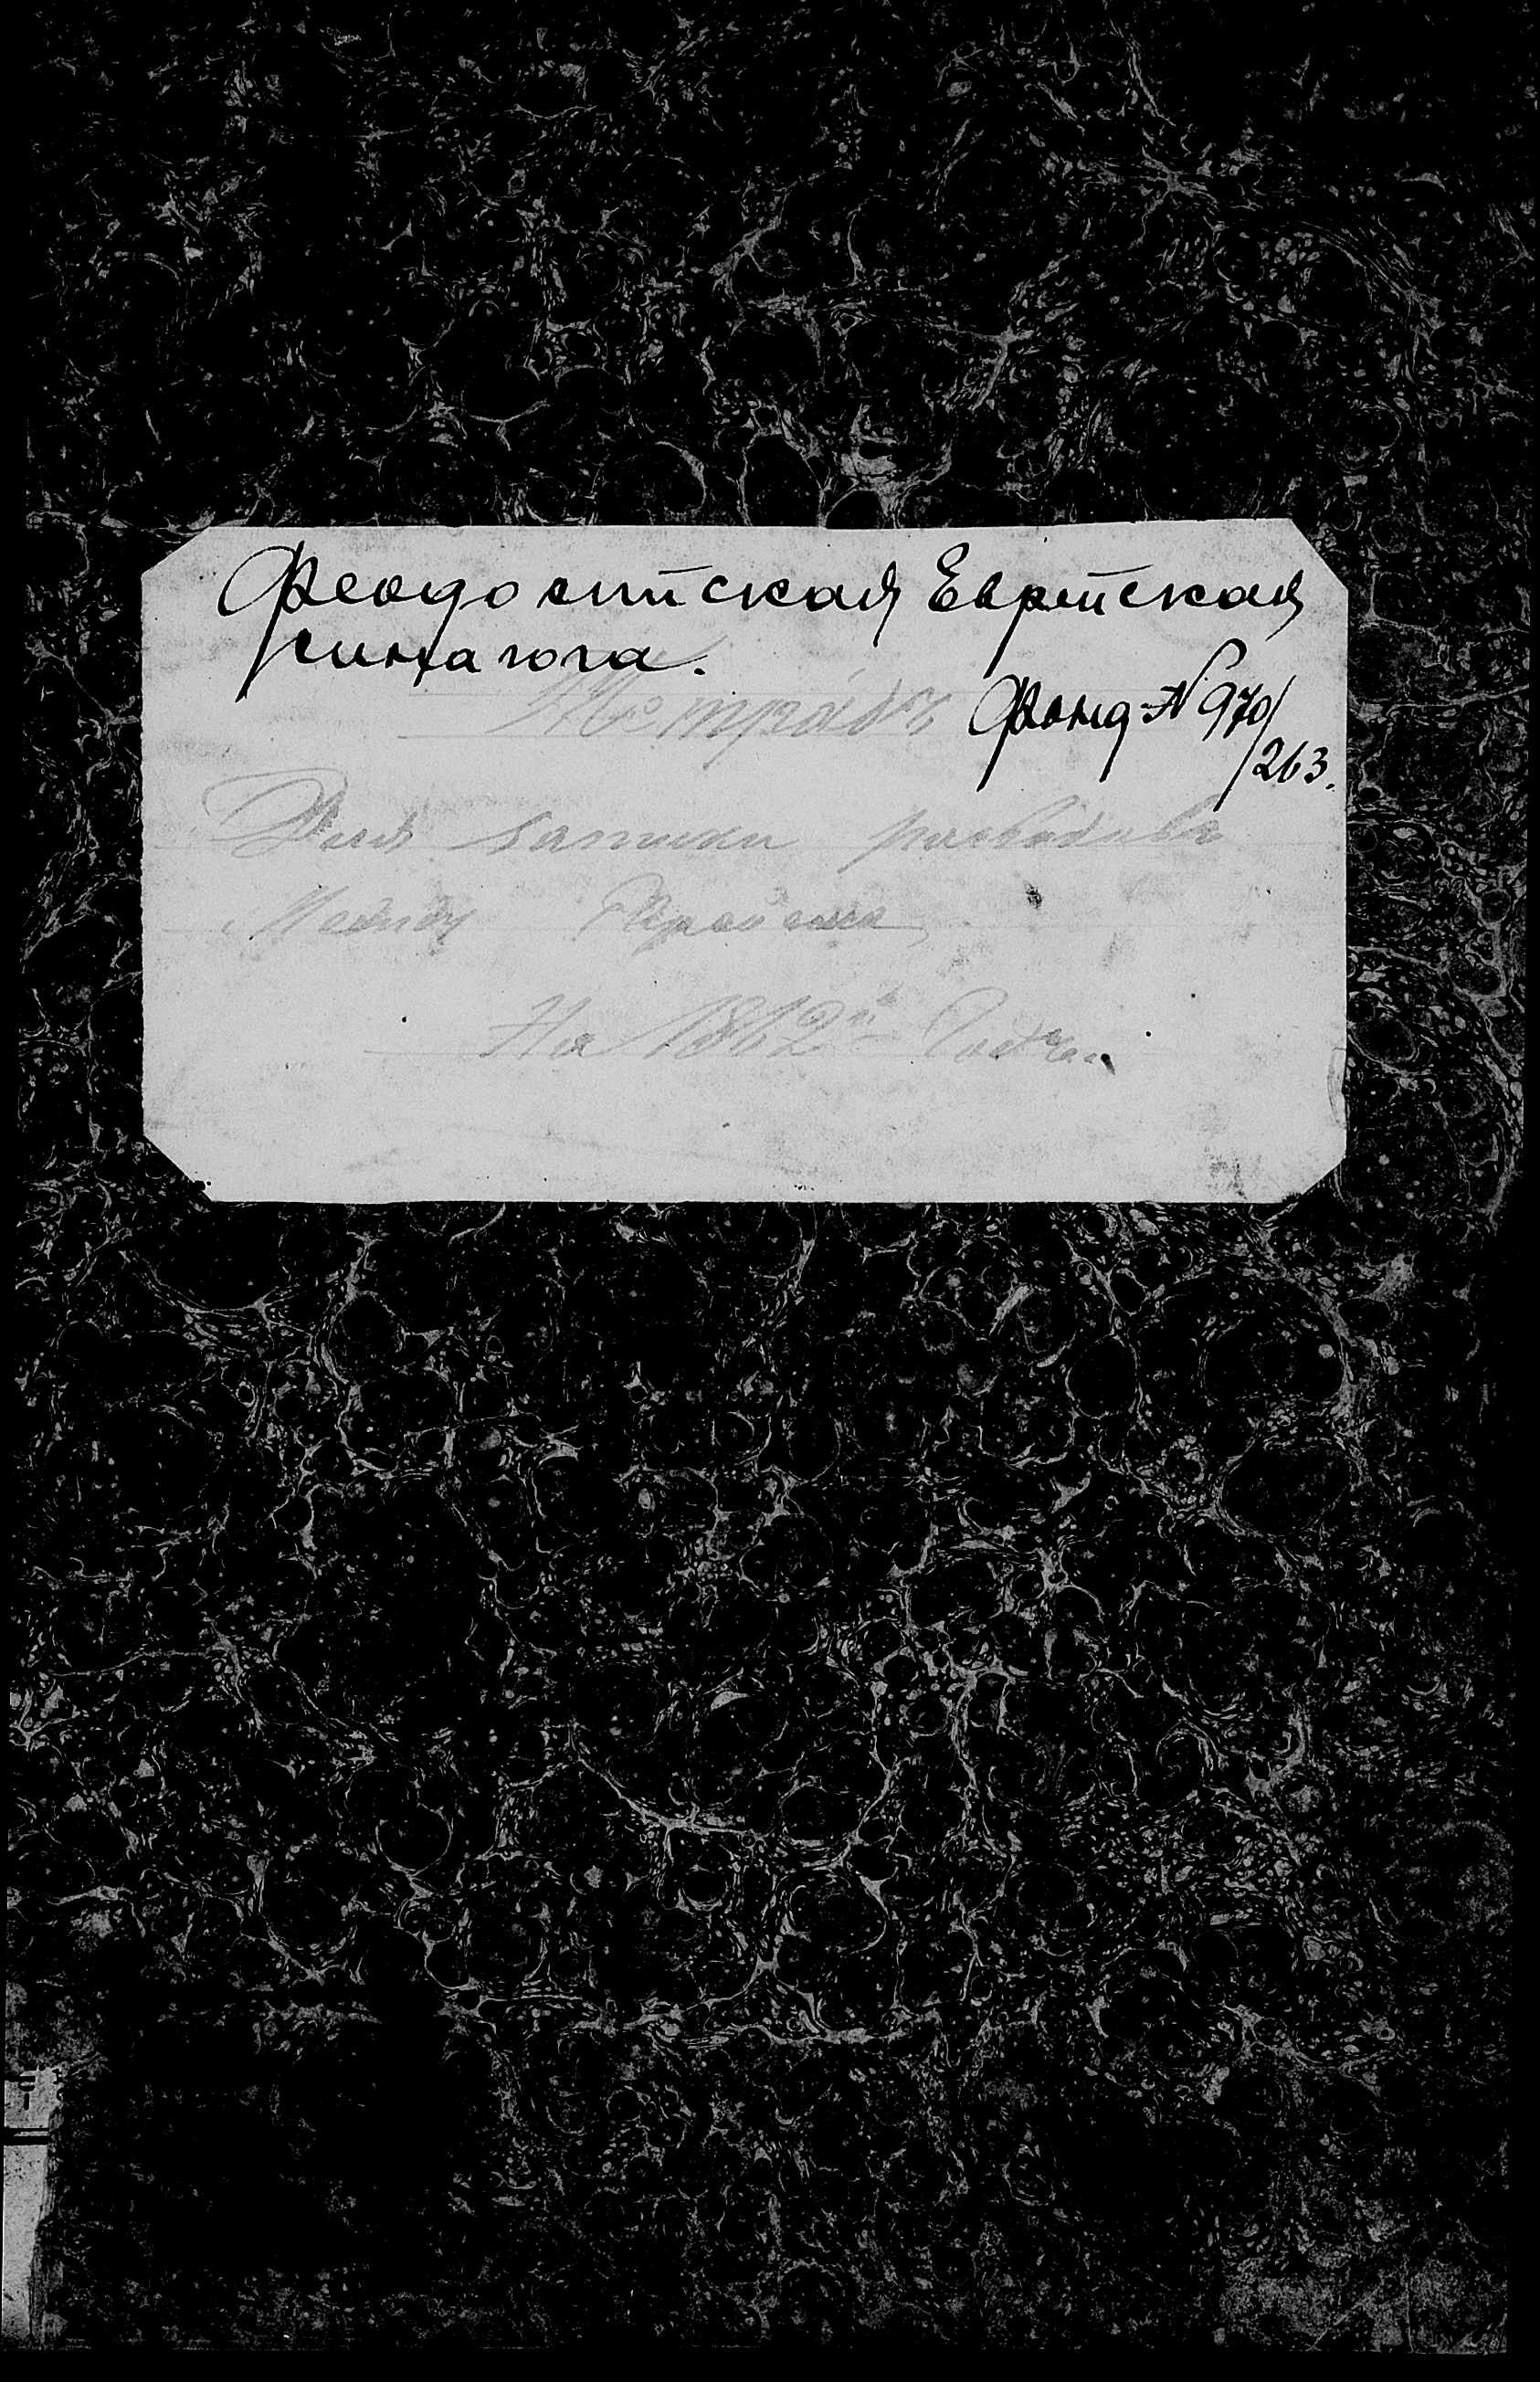 Феодосийская Еврейская
синагога.
Фонд № 970/
263.
Для записки разводовъ
Между
На 1862й Годъ.